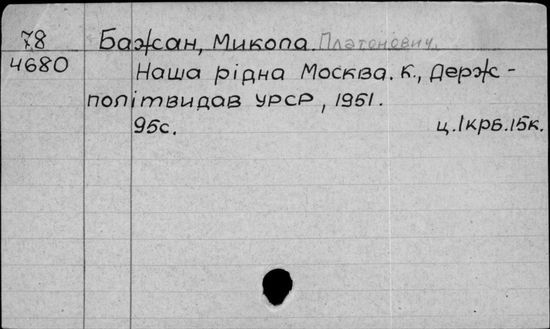 78 Бажан, Микола Платонович.
4680 Наша рідна Москва. К., Держ-
політвидав УРСР, 1951.
95с. ц.1крб.15к.